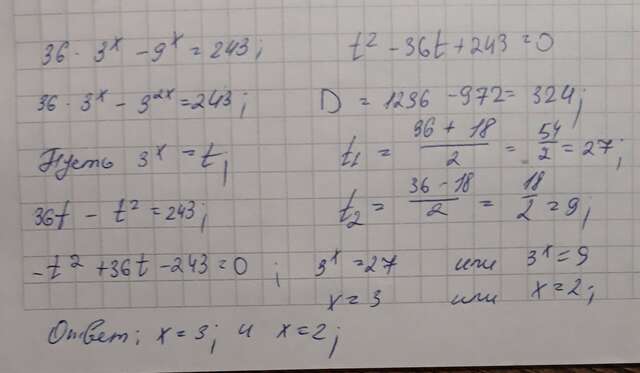 36 · 3^x - 9^x = 243;
36 · 3^x - 3^2x = 243;
Пусть 3^x = t;
36t - t^2 = 243;
-t^2 + 36t - 243 = 0;
t^2 - 36t + 243 = 0
D = 1296 - 972 = 324;
t1 = (36 + 18)/2 = 54/2 = 27;
t2 = (36 - 18)/2 = 18/2 = 9;
3^x = 27 или 3^x = 9
x = 3 или x = 2;
Ответ: x = 3; и x = 2;